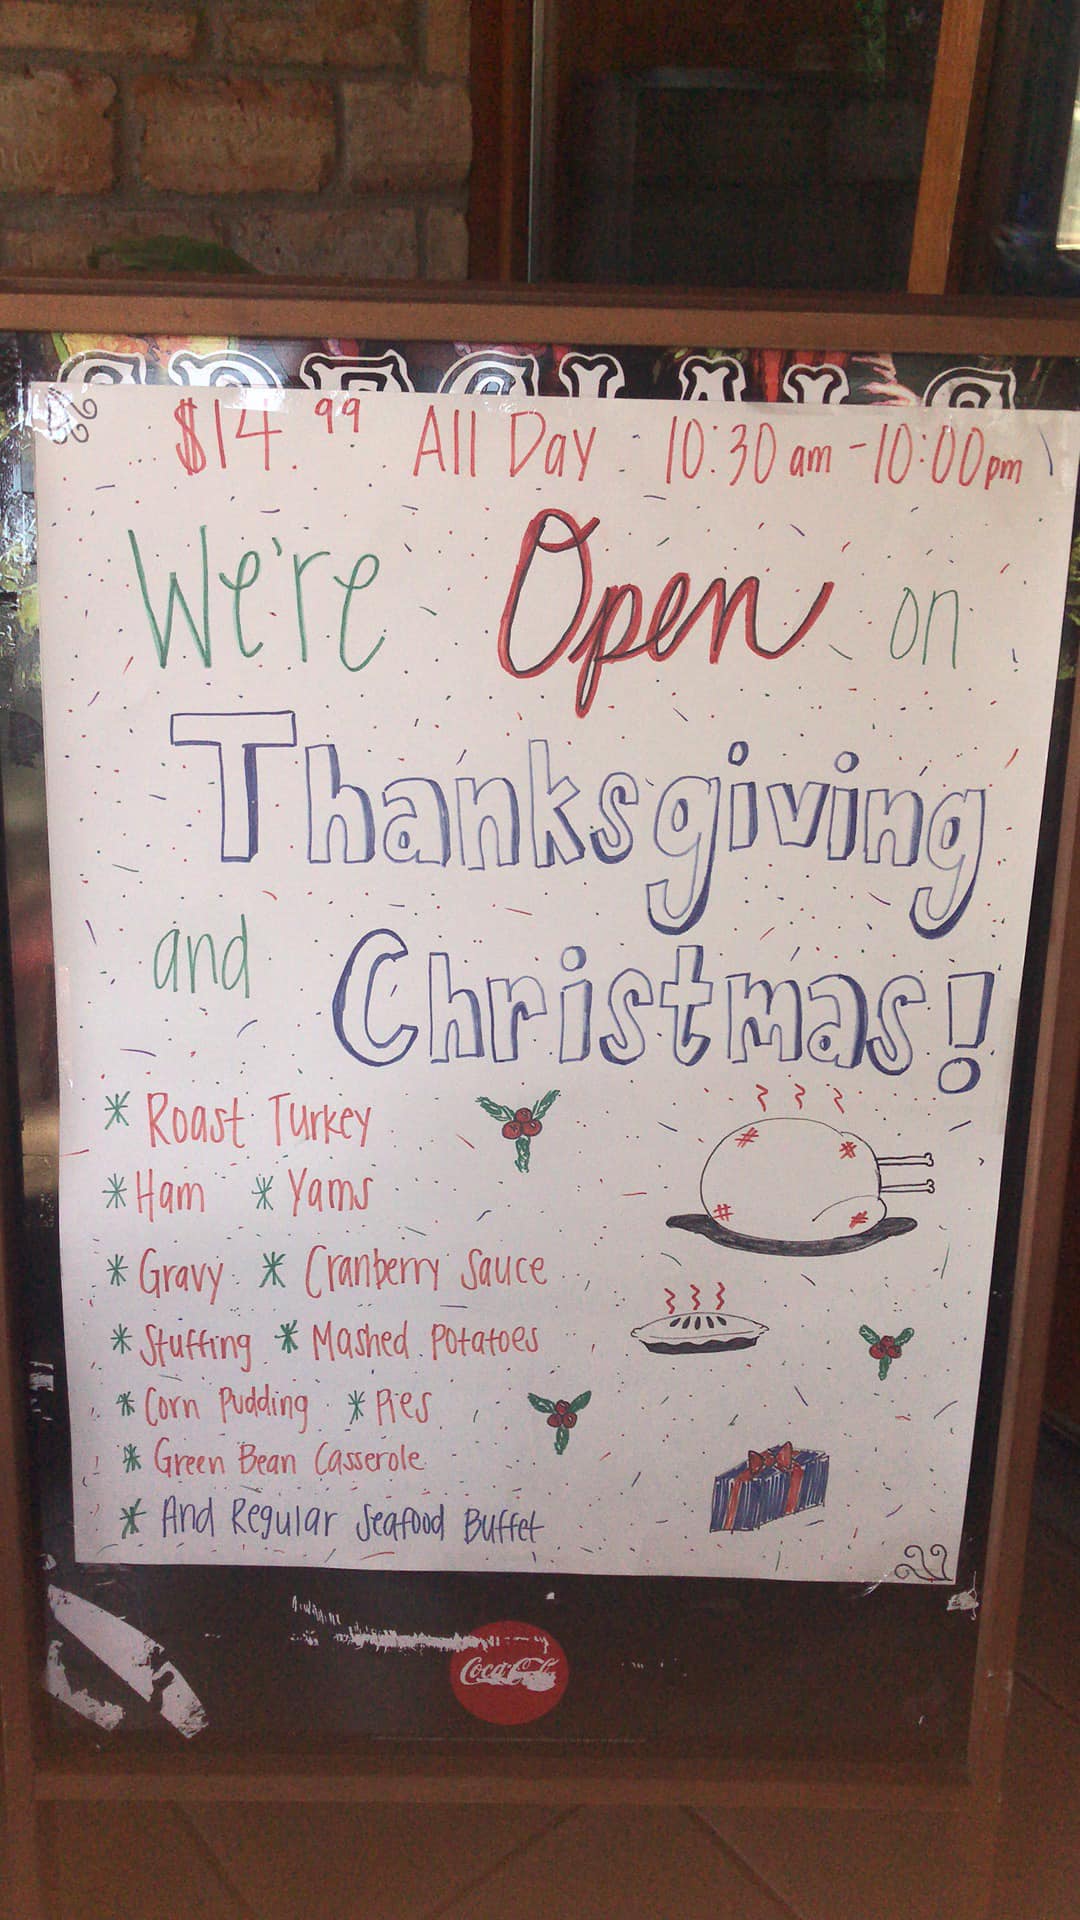 SPECIALS
$14.99 All Day 10:30 am - 10:00 pm
We're Open on
Thanksgiving
and Christmas!
* Roast Turkey
* Ham * Yams
* Gravy * Cranberry Sauce
* Stuffing * Mashed Potatoes
* Corn Pudding * Pies
* Green Bean Casserole
* And Regular Seafood Buffet
Coca-Cola